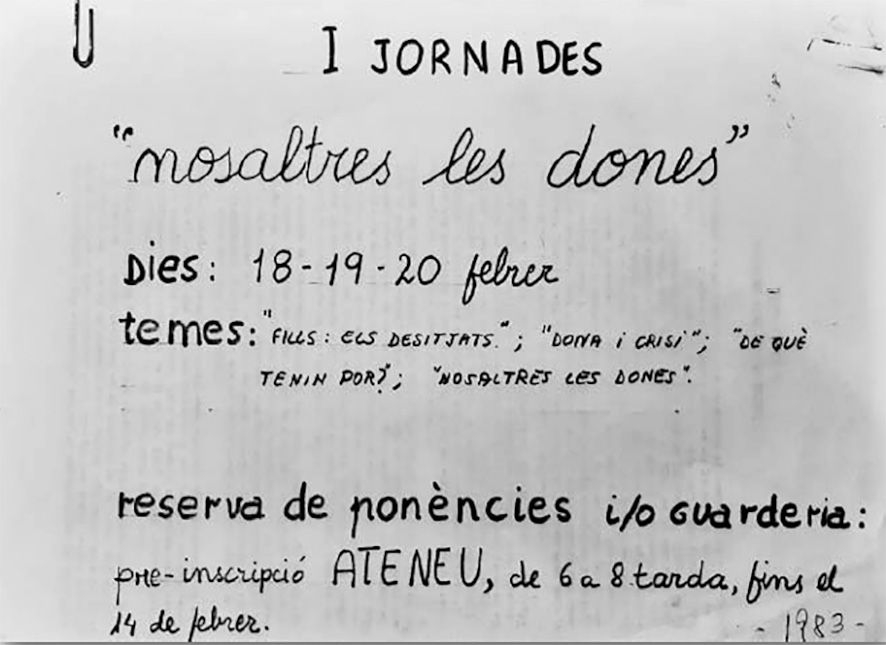 I JORNADES
"nosaltres les dones"
Dies: 18-19-20 febrer
temes: "FILLS: ELS DESITJATS."; "DONA i CRISI"; "DE QUÈ
TENIN POR?"; "NOSALTRES LES DONES".
reserva de ponències i/o guarderia:
pre-inscripció ATENEU, de 6 a 8 tarda, fins el
14 de febrer.
- 1983 -